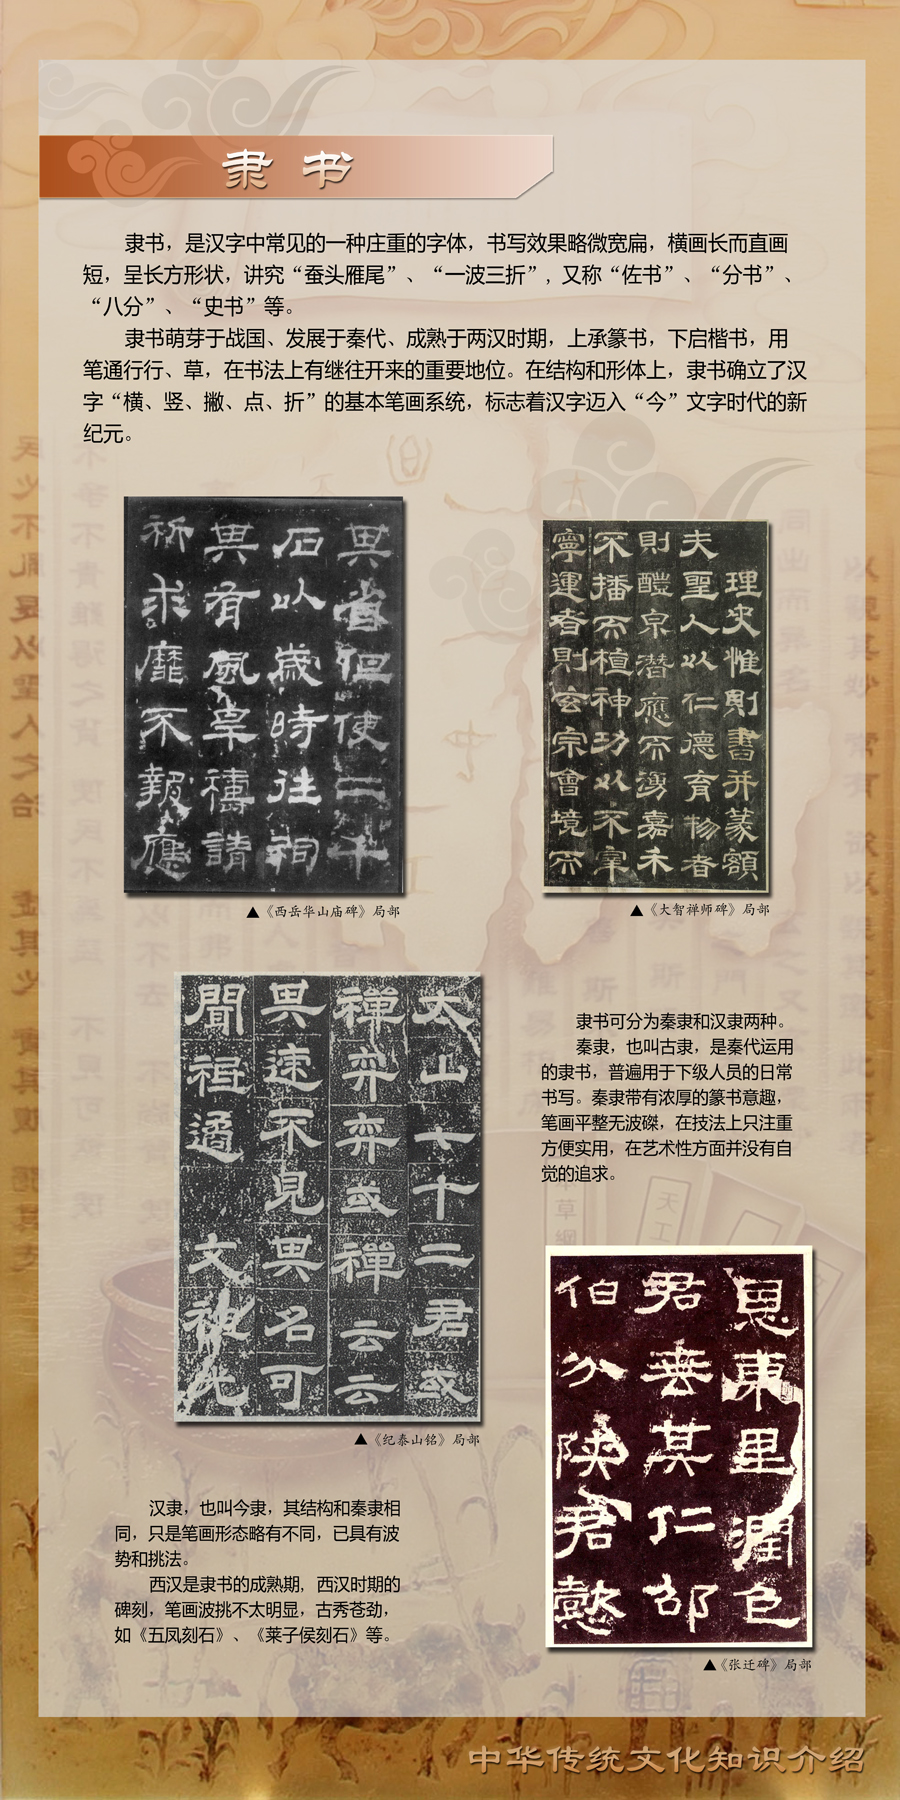 隶书
隶书，是汉字中常见的一种庄重的字体，书写效果略微宽扁，横画长而直画
短，呈长方形状，讲究“蚕头雁尾”、“一波三折”，又称“佐书”、“分书”、
“八分”、“史书”等。
隶书萌芽于战国、发展于秦代、成熟于两汉时期，上承篆书，下启楷书，用
笔通行行、草，在书法上有继往开来的重要地位。在结构和形体上，隶书确立了汉
字“横、竖、撇、点、折”的基本笔画系统，标志着汉字迈入“今”文字时代的新
纪元。
其省但使二千
石以歲時往祠
其有風旱禱請
祈求靡不報應
▲《西岳华山庙碑》局部
理史惟則書并篆額
夫聖人以仁德育物者
則醴泉潛應而湧嘉禾
不播而植神功以不宰
寧運者則玄宗會境而
▲《大智禅师碑》局部
太山七十二君或
禪弈弈或禪云云
其速不見其名可
聞祖遹
文祖光
▲《纪泰山铭》局部
隶书可分为秦隶和汉隶两种。
秦隶，也叫古隶，是秦代运用
的隶书，普遍用于下级人员的日常
书写。秦隶带有浓厚的篆书意趣，
笔画平整无波磔，在技法上只注重
方便实用，在艺术性方面并没有自
觉的追求。
恩東里潤色
君垂其仁邵
伯分陕君懿
▲《张迁碑》局部
汉隶，也叫今隶，其结构和秦隶相
同，只是笔画形态略有不同，已具有波
势和挑法。
西汉是隶书的成熟期，西汉时期的
碑刻，笔画波挑不太明显，古秀苍劲，
如《五凤刻石》、《莱子侯刻石》等。
中华传统文化知识介绍